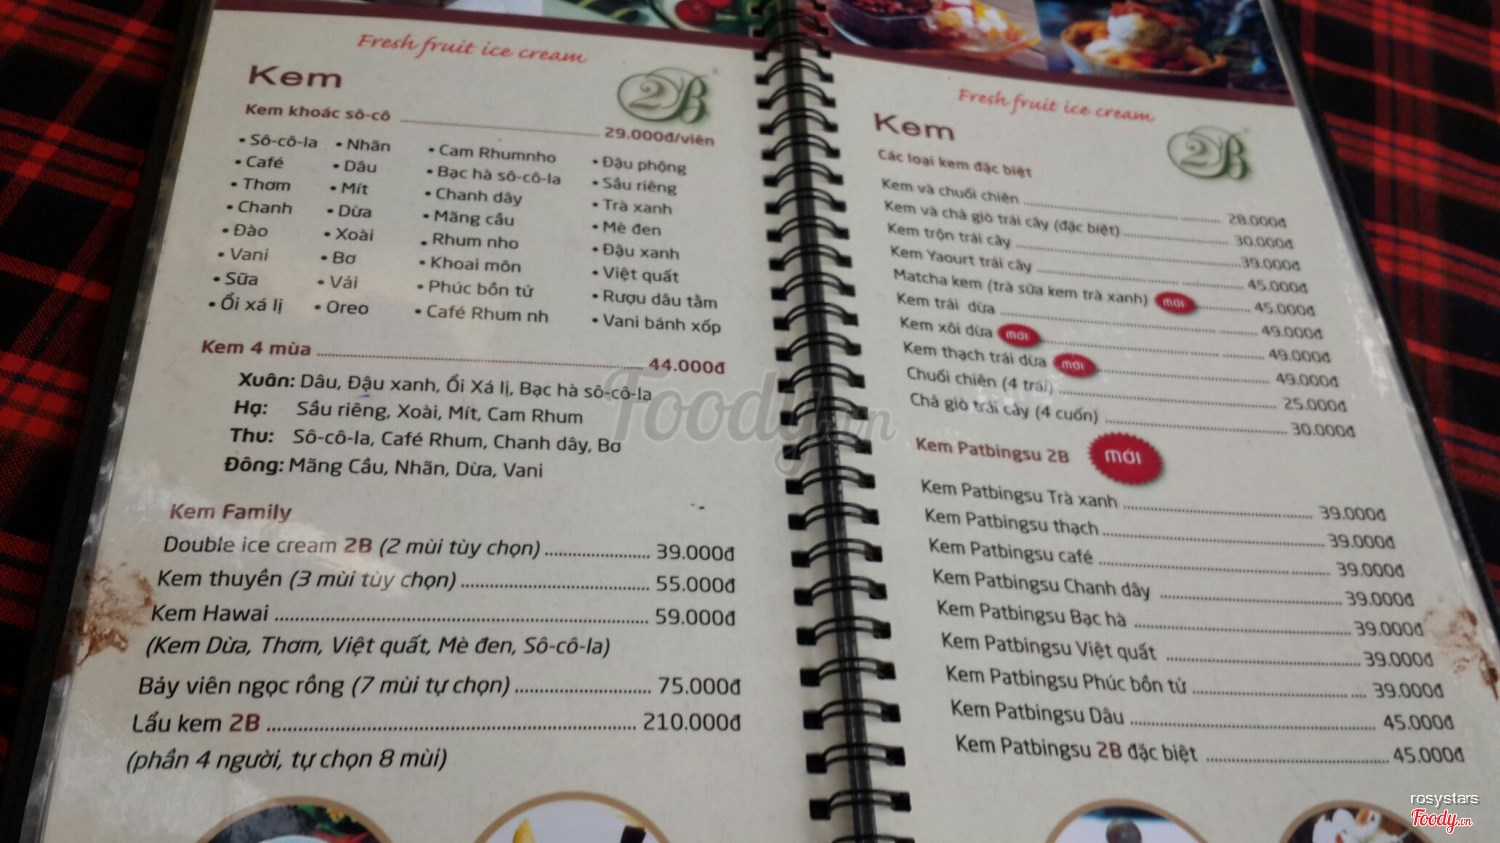 Fresh fruit ice cream
Kem
2B
Kem khoác sô-cô ... 29.000đ/viên
• Sô-cô-la • Nhãn • Cam Rhumnho • Đậu phộng
• Café • Dâu • Bạc hà sô-cô-la • Sầu riêng
• Thơm • Mít • Chanh dây • Trà xanh
• Chanh • Dừa • Mãng cầu • Mè đen
• Đào • Xoài • Rhum nho • Đậu xanh
• Vani • Bơ • Khoai môn • Việt quất
• Sữa • Vải • Phúc bồn tử • Rượu dâu tằm
• Ổi xá lị • Oreo • Café Rhum nh • Vani bánh xốp
Kem 4 mùa ... 44.000đ
Xuân: Dâu, Đậu xanh, Ổi Xá lị, Bạc hà sô-cô-la
Hạ: Sầu riêng, Xoài, Mít, Cam Rhum
Thu: Sô-cô-la, Café Rhum, Chanh dây, Bơ
Đông: Mãng Cầu, Nhãn, Dừa, Vani
Kem Family
Double ice cream 2B (2 mùi tùy chọn) ... 39.000đ
Kem thuyền (3 mùi tùy chọn) ... 55.000đ
Kem Hawai ... 59.000đ
(Kem Dừa, Thơm, Việt quất, Mè đen, Sô-cô-la)
Bảy viên ngọc rồng (7 mùi tự chọn) ... 75.000đ
Lẩu kem 2B ... 210.000đ
(phần 4 người, tự chọn 8 mùi)
Fresh fruit ice cream
Kem
2B
Các loại kem đặc biệt
Kem và chuối chiên ... 28.000đ
Kem và chả giò trái cây (đặc biệt) ... 30.000đ
Kem trộn trái cây ... 39.000đ
Kem Yaourt trái cây ... 45.000đ
Matcha kem (trà sữa kem trà xanh) mới ... 45.000đ
Kem trái dừa ... 49.000đ
Kem xôi dừa mới ... 49.000đ
Kem thạch trái dừa mới ... 49.000đ
Chuối chiên (4 trái) ... 25.000đ
Chả giò trái cây (4 cuốn) ... 30.000đ
Kem Patbingsu 2B mới
Kem Patbingsu Trà xanh ... 39.000đ
Kem Patbingsu thạch ... 39.000đ
Kem Patbingsu café ... 39.000đ
Kem Patbingsu Chanh dây ... 39.000đ
Kem Patbingsu Bạc hà ... 39.000đ
Kem Patbingsu Việt quất ... 39.000đ
Kem Patbingsu Phúc bồn tử ... 39.000đ
Kem Patbingsu Dâu ... 45.000đ
Kem Patbingsu 2B đặc biệt ... 45.000đ
Foody.vn
rosystars
Foody.vn